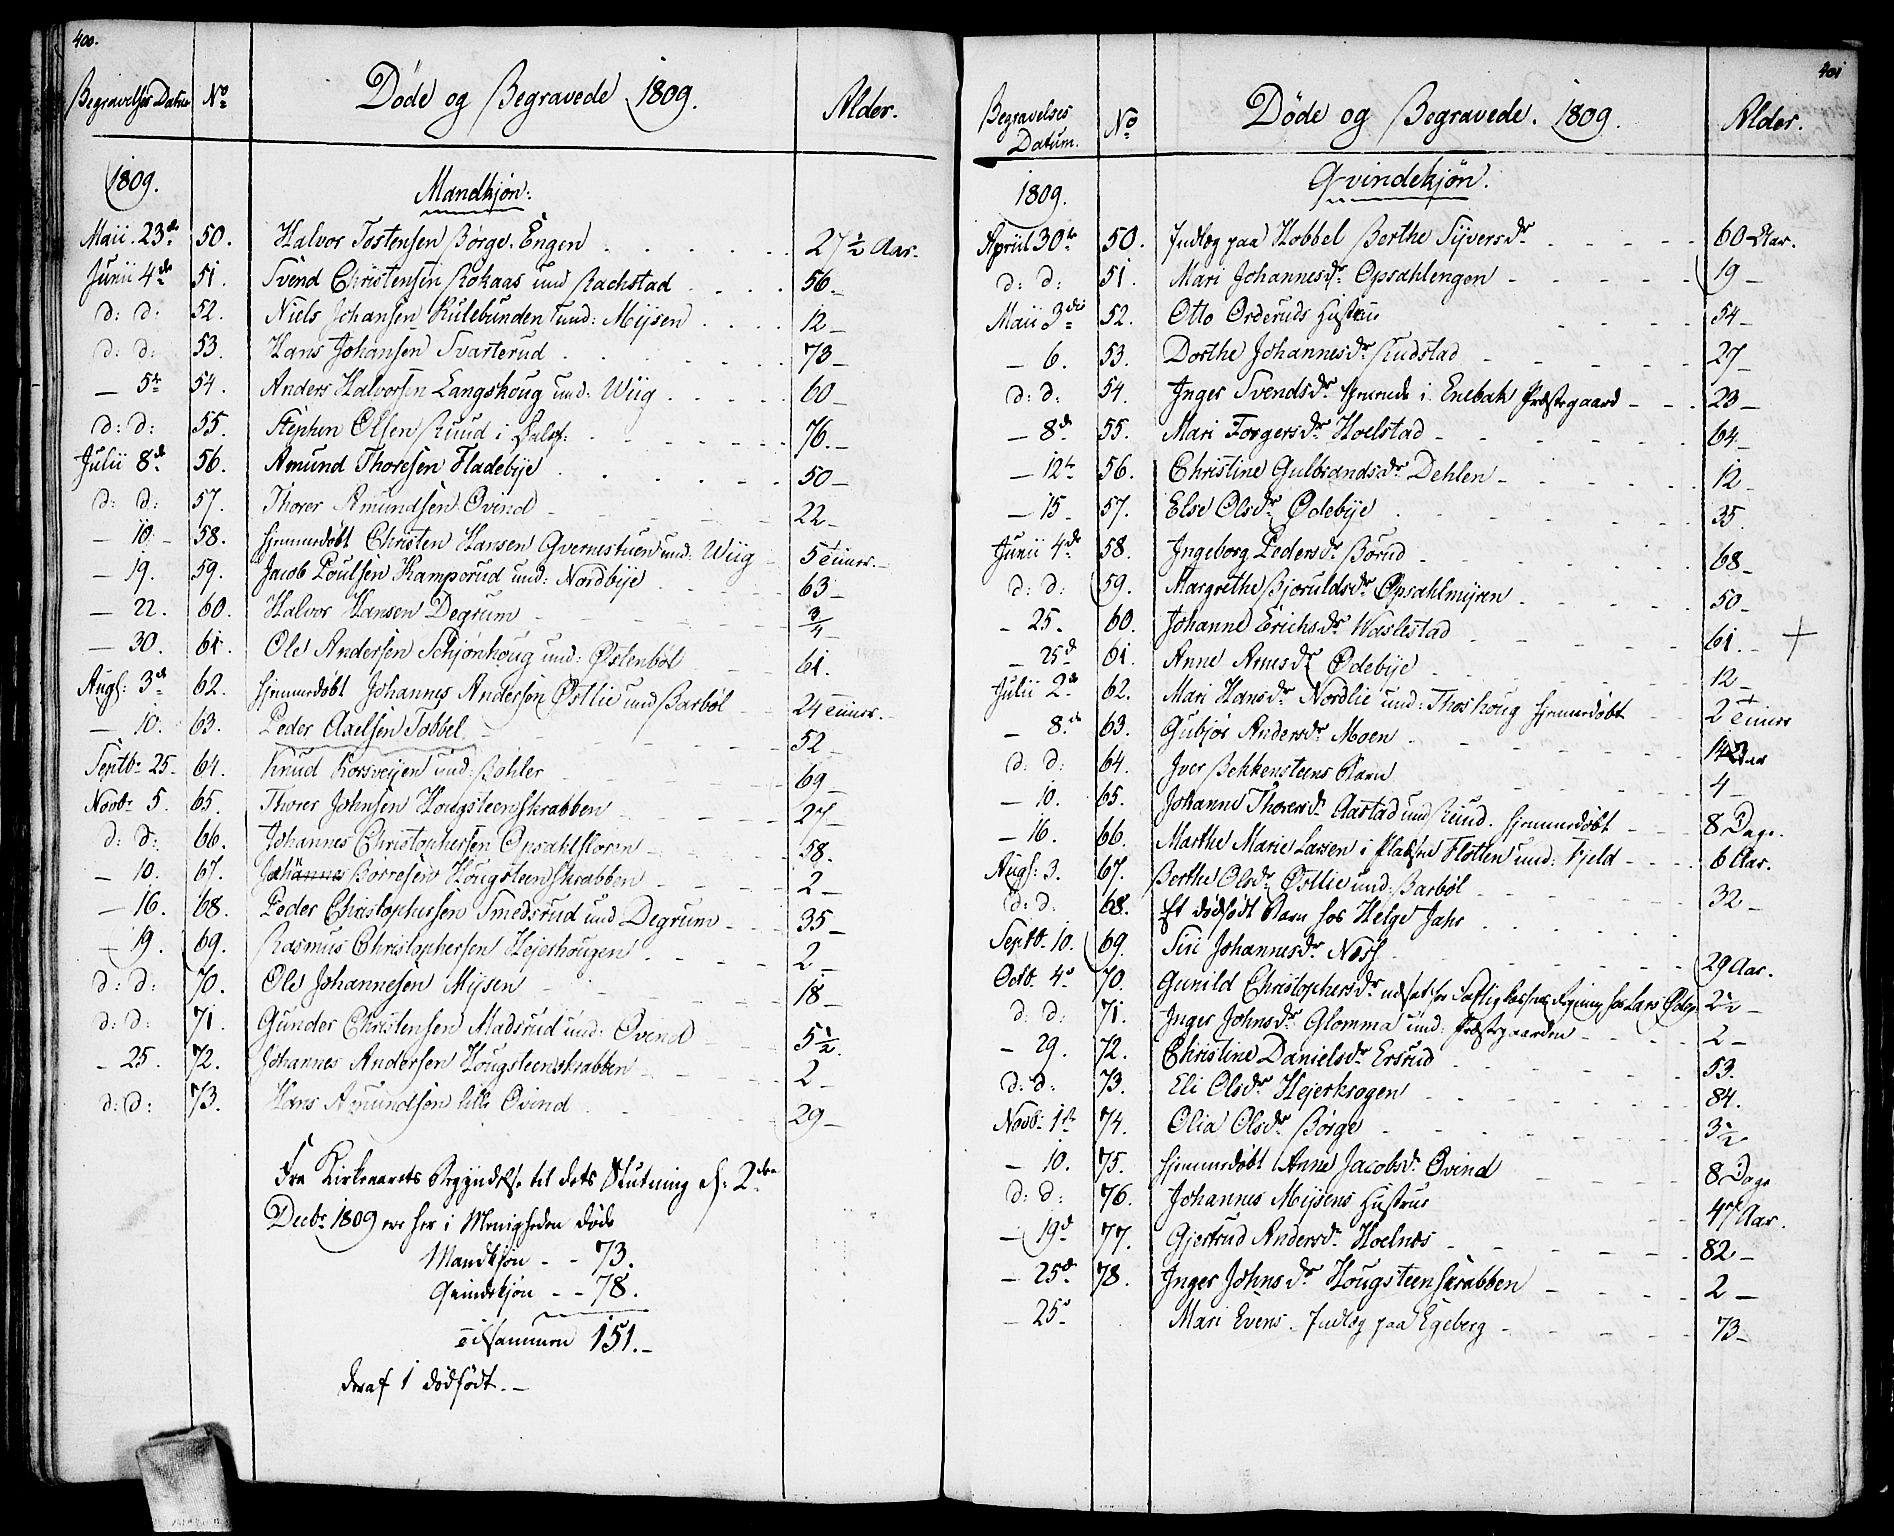 400.
Begravelses Datum No Döde og Begravede 1809. Alder.
1809. Mandkjön:
Maii. 23de 50. Halvor Tostensen Börge-Engen 27 1/2 Aar.
Junii 4de 51. Svend Christensen Rokaas und Rachstad 56 -
d: d: 52. Niels Johansen Rulebunden und: Mijsen 12 -
d: d: 53. Hans Johansen Svarterud 73 -
- 5te 54. Anders Halvorsen Langshoug und: Wiig 60 -
d: d: 55. Stephen Olsen Ruud i 76. -
Julii 8de 56. Amund Thoresen Fladebije 50 -
d: d: 57. Thorer Amundsen Ovind 22 -
- 10. - 58. hjemmedöbt Christen Hansen Qvernestuen und: Wiig 5 Timer. -
- 19. 59. Jacob Poulsen Kamperud und: Nordbije 63 -
- 22. 60. Halvor Hansen Degrum 3/4 -
- 30. 61. Ole Andersen Schjönhoug und: Östenböl 61. -
Augs: 3de 62. hjemmedöbt Johannes Andersen Östlie und Barböl 24 Timer. -
- 10. 63. Peder Axelsen Tobbel 52 -
Septbr 25. 64. Knud Korsveijen und: Bahler 69 -
Novbr 5. 65. Thorer Johnsen Hougsteenskrabben 27 -
d: d: 66. Johannes Christophersen Opsahl 58.
- 10. 67. Johannes Börresen Hougsteenskrabben 2 -
- 16. 68. Peder Christophersen Smedsrud und Degrum 35 -
- 19. 69. Rasmus Christophersen Hejerkrogen 2 -
d: d: 70. Ole Johannesen Mijsen 18 -
d: d: 71. Gunder Christensen Madsrud und: Ovind 5 1/2.
- 25. 72. Johannes Andersen Hougsteenskrabben 2 -
d: d: 73. Hans Amundsen lille Ovind 29 -
Fra Kirkeaarets Begyndelse til dets Slutning d: 2den
Decbr 1809 ere her i Menigheden döde
Mandkjön - - 73.
Qvindekjön - - 78.
Tilsammen 151. -
deraf 1 dödfödt. -
401
Begravelses Datum. No Döde og Begravede. 1809. Alder.
1809. Qvindekjön.
Apriil 30te 50. Indlæg paa Hobbel Berthe Sijversdr 60 Aar.
d: d: 51. Mari Johannesdr: Opsahlengen 19 -
Maii 3die 52. Otto Orderuds Hustrue 54 -
- 6. 53. Dorthe Johannesdr Rudstad 27 -
d: d: 54. Inger Svendsdr: tjenende i Enebak Præstegaard 23 -
- 8de 55. Mari Torgersdr Hoelstad 64 -
- 12te 56. Christine Gulbrandsdr Dehlen 12 -
- 15 - 57. Else Olsdr Ödebije 35.
Junii 4de 58. Ingeborg Pedersdr Börud 68 -
d: d: 59. Margrethe Björuldsdr Opsahlmijren 50 -
- 25. 60. Johanne Erichsdr Waslestad 61. - +
- 25de 61. Anne Arnesdr Ödebije 12 -
Julii 2de 62. Mari Hansdr Nordlie und: Thoshoug hjemmedöbt 2 Timer
- 8de 63. Gubjör Andersdr Moen 14
d: d: 64. Iver Bekkensteens Barn 4 -
- 10. 65. Johanne Thoresdr Aastad und Ruud. hjemmedöbt 8 Dage.
- 16. 66. Marthe Marie Larsen i Pladsen Flotten und: Fjeld 6 Aar.
Augs: 3. 67. Berthe Olsdr Östlie und: Barböl 32 -
d: d: 68. Et dödfödt Barn hos Helge Jahr
Septb. 10. 69. Siri Johannesdr Næss 29 Aar.
Octb. 4de 70. Gunild Christophersdr udsat for Fattigkassens Regning hos Lars 2 1/2 -
d: d: 71. Inger Johnsdr Glomma und: Præstegaarden 2 -
- 29. 72. Christine Danielsdr Ersrud 53.
d: d: 73. Eli Olsdr Hejerkrogen 84.
Novb: 1te 74. Olia Olsdr Börge 3 1/2
- 10. 75. hjemmedöbt Anne Jacobsdr Ovind 8 Dage
d: d: 76. Johannes Mijsens Hustrue 47 Aar.
- 19de 77. Gjertrud Andersdr Hoelnæs 82 -
- 25de 78. Inger Johnsdr Hougsteenskrabben 2 -
- 25de Mari Evens. Indlæg paa Egeberg 73 -